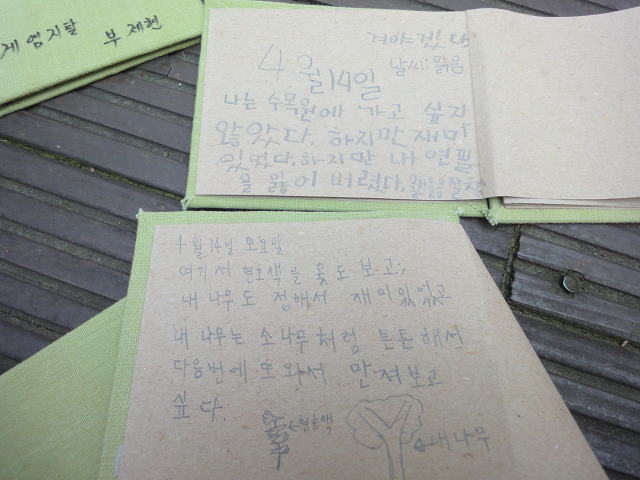 부 제현
겨야겠다
4월14일
날씨:맑음
나는 수목원에 가고 싶지
않았다. 하지만 재미
있었다. 하지만 내 연필
을 잃어 버렸다.
4월 14일 토요일
여기서 현호색을 꽃도 보고;
내 나무도 정해서 재미있었고
내 나무는 소나무처럼 튼튼해서
다음번에 또 와서 만져보고
싶다.
←현호색
←내 나무